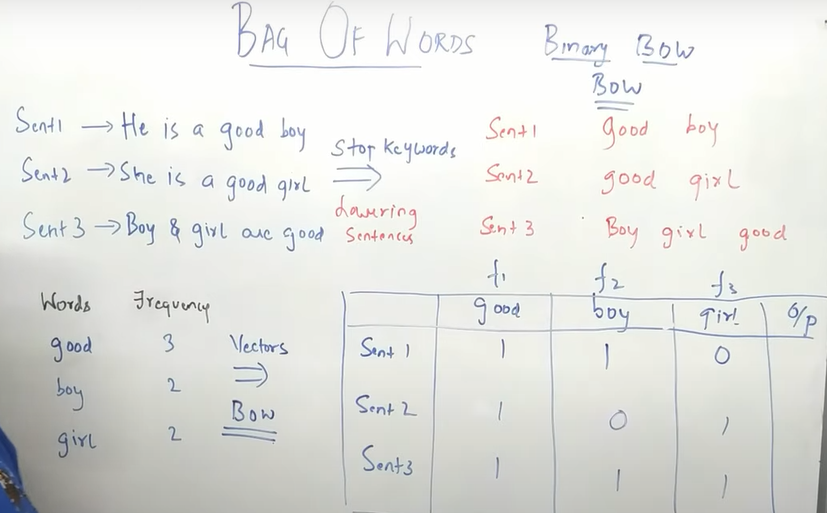 BAG OF WORDS
Binary BOW
BOW
Sent1 → He is a good boy
Sent2 → She is a good girl
Sent 3 → Boy & girl are good
Stop Keywords
⇒
Lowering
Sentences
Sent1 good boy
Sent2 good girl
Sent 3 Boy girl good
Words Frequency
good 3
boy 2
girl 2
Vectors
⇒
BOW
f1 f2 f3
good boy girl O/p
Sent 1 1 1 0
Sent 2 1 0 1
Sent3 1 1 1